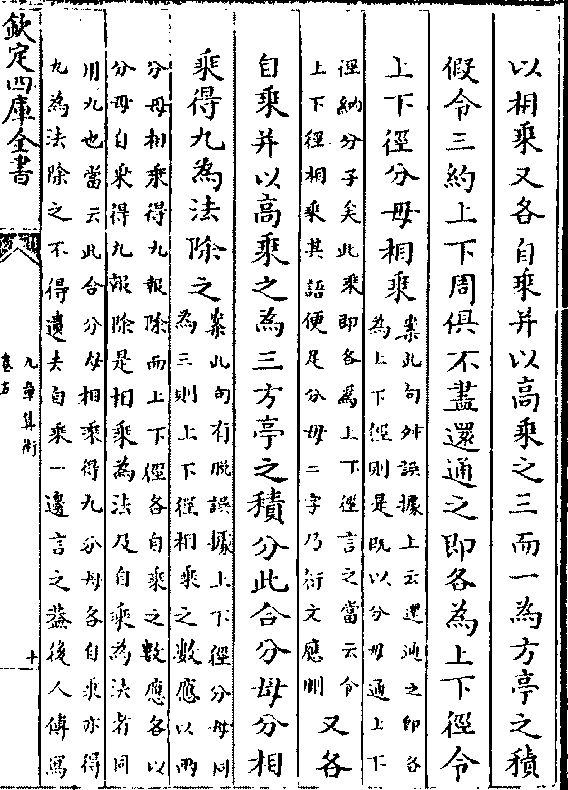 以相乘又各自乘并以高乘之三而一為方亭之積
假令三約上下周俱不盡還通之即各為上下徑令
上下徑分母相乘
案此句舛誤據上云還通之即各
為上下徑則是既以分母通上下
徑納分子矣此乘即各為上下徑言之當云令
上下徑相乘其語便足分母二字乃衍文應刪
又各
自乘并以高乘之為三方亭之積分此合分母分相
乘得九為法除之
案此句有脫誤據上下徑分母同
為三則上下徑相乘之數應以兩
分母相乘得九報除而上下徑各自乘之數應各以
分母自乘得九報除是相乘為法及自乘為法者同
用九也當云此合分母相乘得九分母各自乘亦得
九為法除之不得遺去自乘一邊言之蓋後人傳寫
欽定四庫全書
九章算術
卷五
十